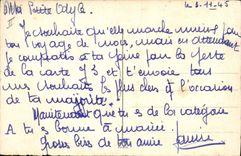 Petite Odyle. le 8-11-45
II Je souhaite qu'elle marche mieux pour
ton voyage de noces, mais en attendant
je compatis à ta peine pour la perte
de la carte d'I, et t'envoie tous
mes souhaits les plus chers à l'occasion
de ta majorité.
Maintenant que tu es de la catégorie
A tu es bonne à marier.
Gros bises de ton amie.